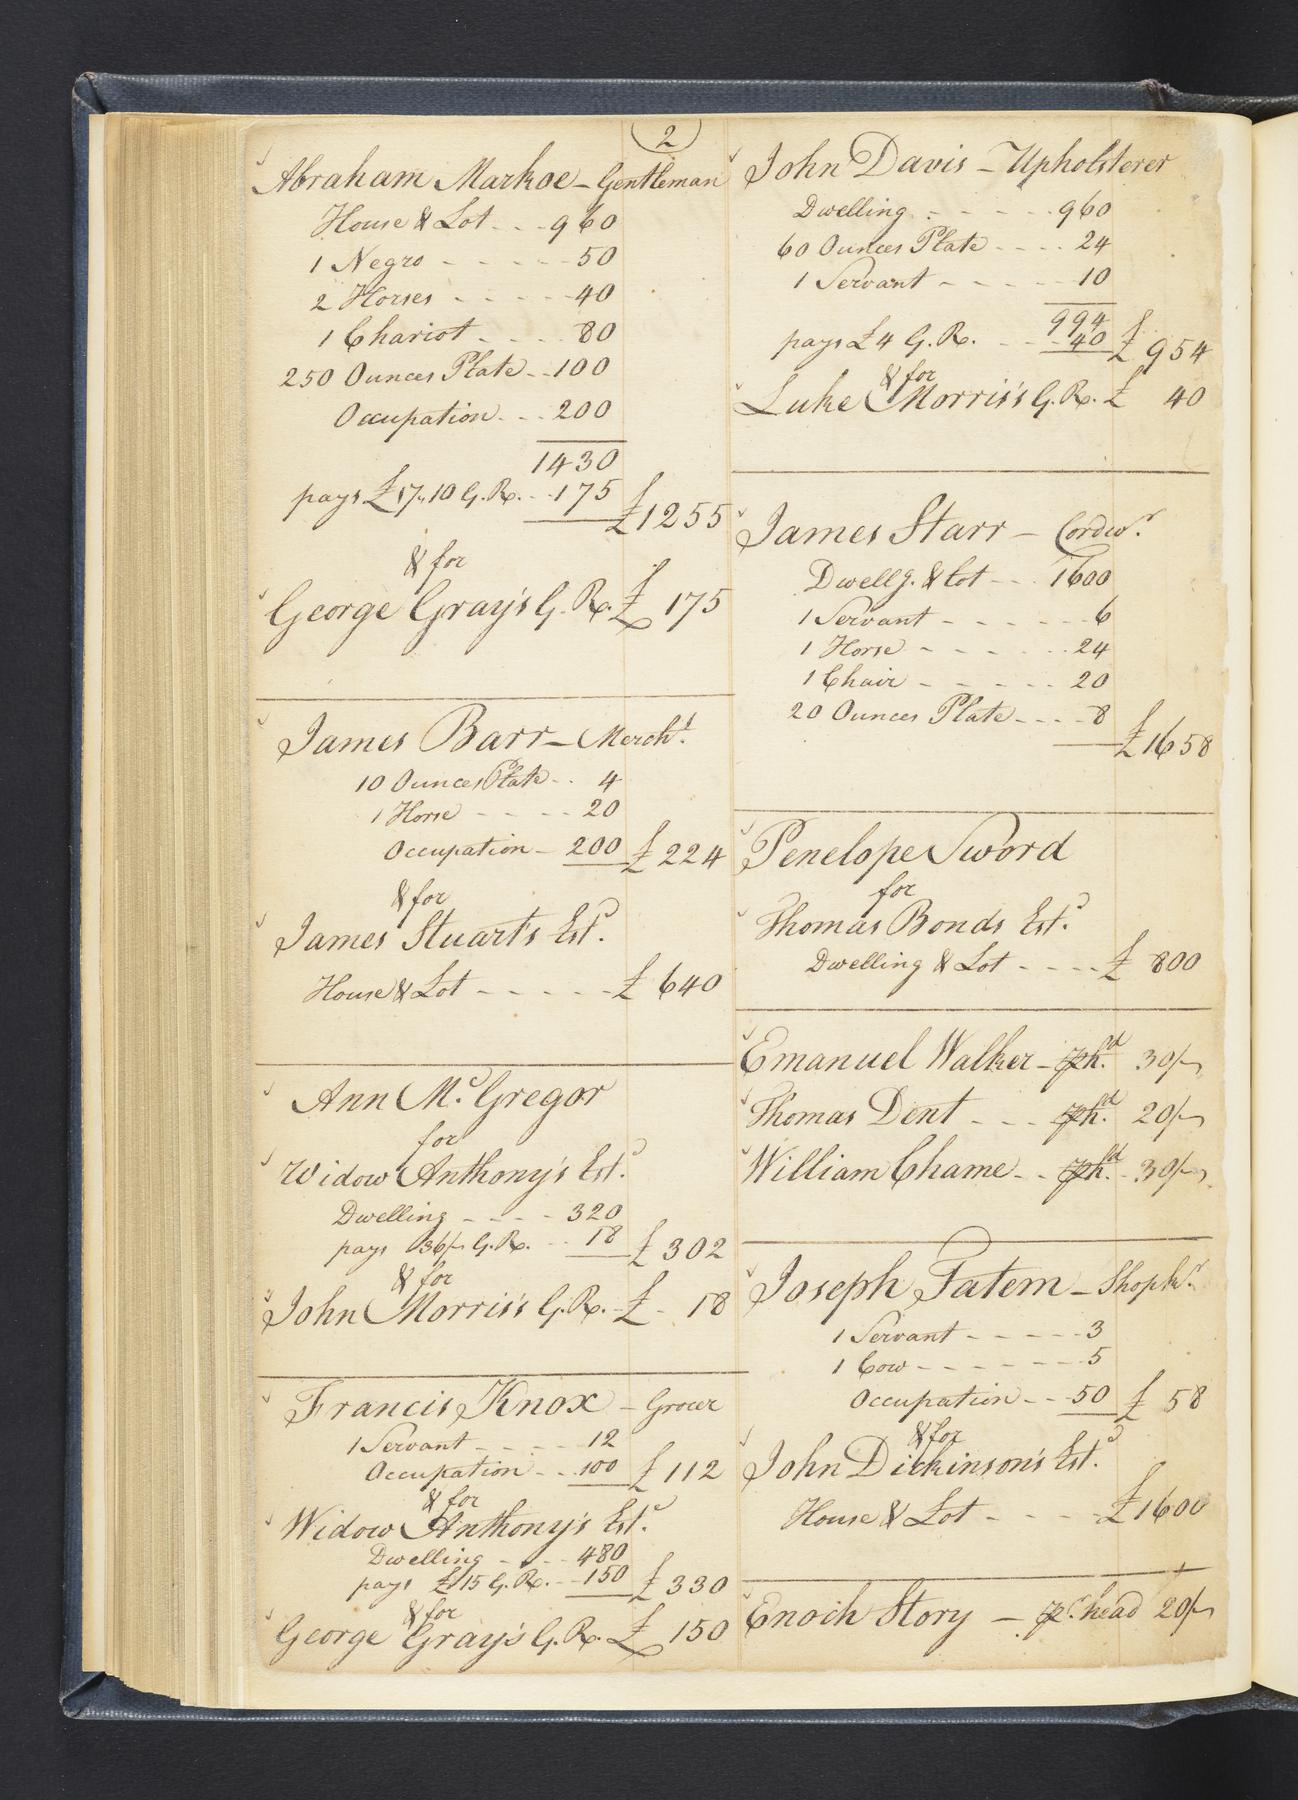 2
Abraham Markoe - Gentleman
House & Lot - - - 960
1 Negro - - - - - 50
2 Horses - - - - - 40
1 Chariot - - - - 80
250 Ounces Plate - - 100
Occupation - - - 200
1430
pays £17,,10 G. R. - - 175 £1255
& for
George Gray's G. R. £ 175
James Barr - Mercht.
10 Ounces Plate - - 4
1 Horse - - - - 20
Occupation - 200 £224
& for
James Stuart's Estd.
House & Lot - - - - - - £ 640
Ann Mc. Gregor
for
Widow Anthony's Estd.
Dwelling - - - - 320
pays 36/- G. R. - - 18 £302
& for
John Morris's G. R. - £ - 18
Francis Knox - Grocer
1 Servant - - - - 12
Occupation - - 100 £112
& for
Widow Anthony's Estd.
Dwelling - - - 480
pays £15 G. R. - - 150 £330
& for
George Gray's G. R. £ 150
John Davis - Upholsterer
Dwelling - - - - - 960
60 Ounces Plate - - - - 24
1 Servant - - - - - 10
994
pays £4 G. R. - - - 40 £954
& for
Luke Morris's G. R. £ 40
James Starr - Cordwr.
Dwellg. & Lot - - - 1600
1 Servant - - - - - - 6
1 Horse - - - - - 24
1 Chair - - - - - 20
20 Ounces Plate - - - - 8
£1658
Penelope Sword
for
Thomas Bonds Estd.
Dwelling & Lot - - - - £ 800
Emanuel Walker - phd. 30/-
Thomas Dent - - - phd. 20/-
William Chame - - phd. - 30/-
Joseph Tatem - Shopkr.
1 Servant - - - - - 3
1 Cow - - - - - - - 5
Occupation - - - 50 £ 58
& for
John Dickinson's Estd.
House & Lot - - - - £1600
Enoch Story - pr. head 20/-